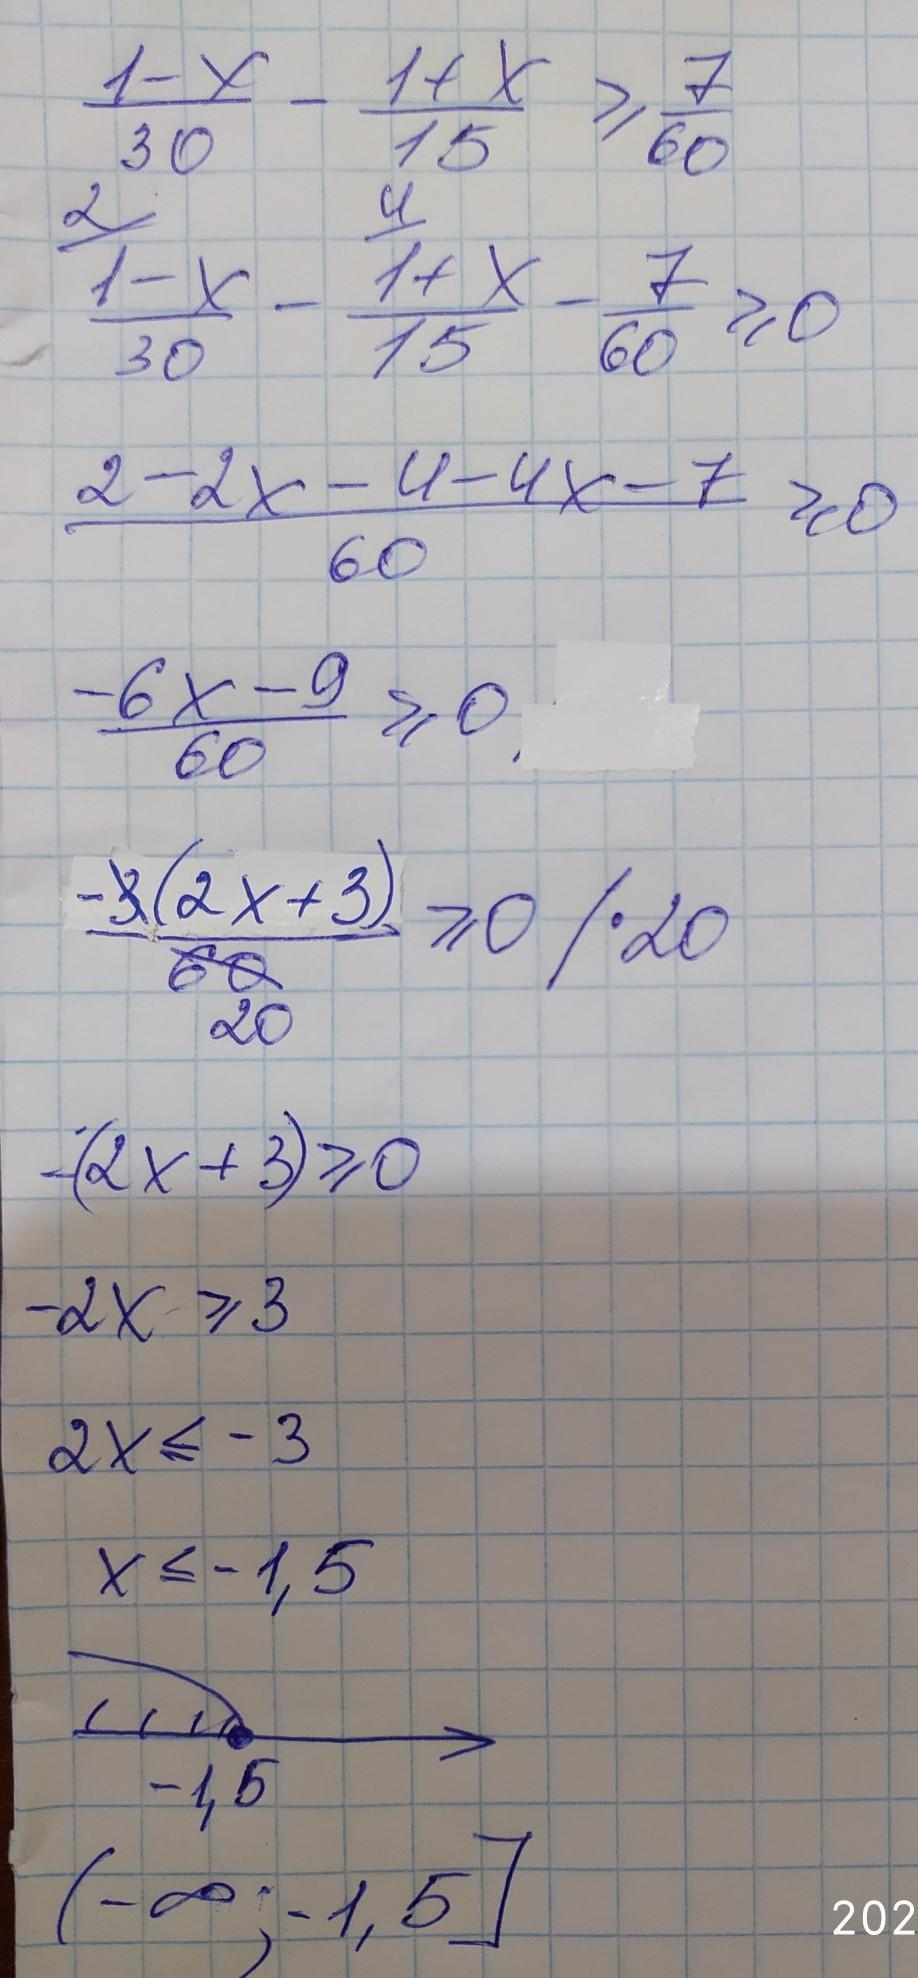 (1-x)/30 - (1+x)/15 ⩾ 7/60
2/ (1-x)/30 - 4/ (1+x)/15 - 7/60 ⩾ 0
(2-2x-4-4x-7)/60 ⩾ 0
(-6x-9)/60 ⩾ 0
-3(2x+3)/60 ⩾ 0 /·20
20
-(2x+3)⩾0
-2x ⩾ 3
2x ⩽ -3
x ⩽ -1,5
-1,5
(-∞; -1,5]
202